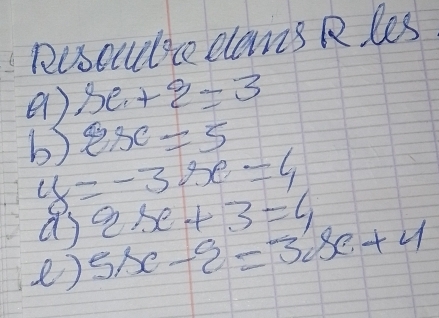 Resoudre dans R les
a) x + 2 = 3
b) 2x = 5
y = -3x = 4
d) 2x + 3 = 4
e) 5x - 2 = 3x + 4